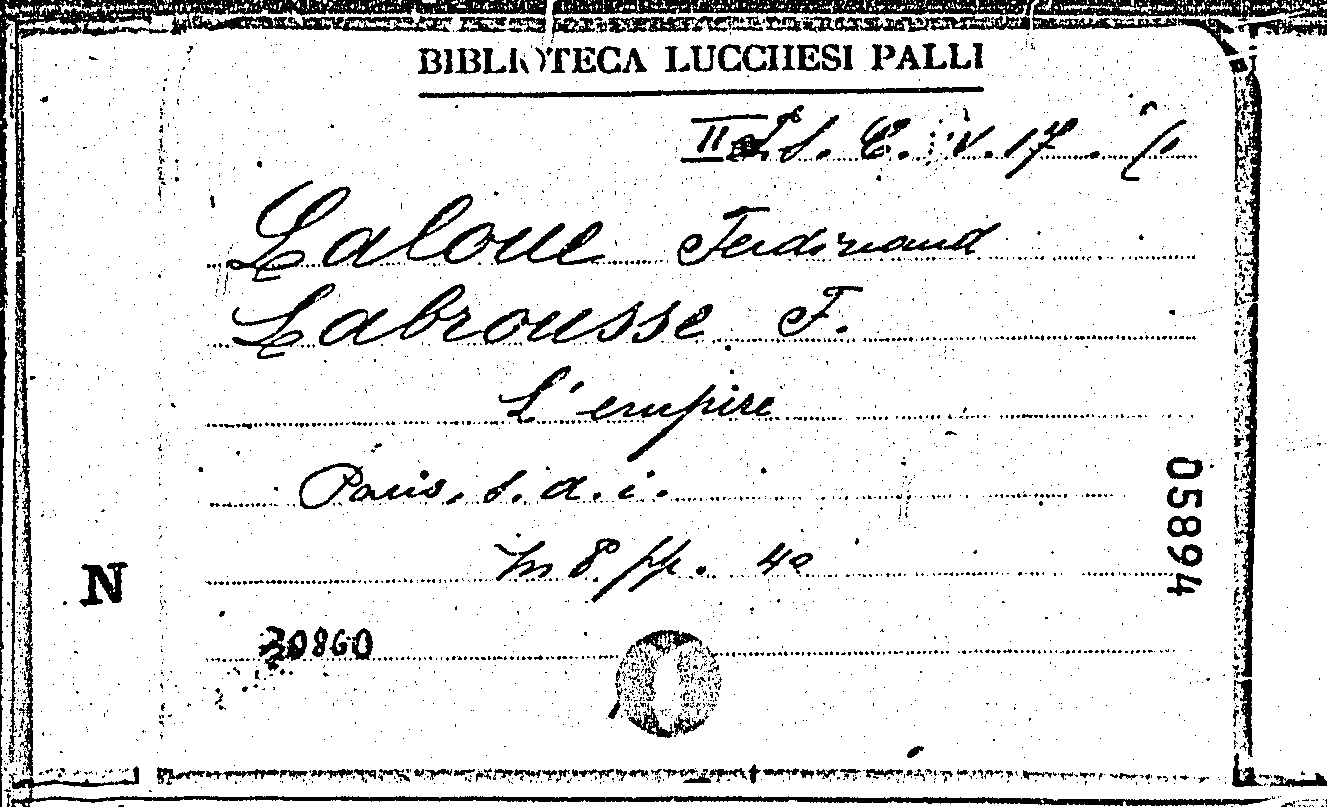 BIBLIOTECA LUCCHESI PALLI
II L.S. C. V. 17. (1
Laloue Ferdinand
Labrousse F.
L'empire
Paris, s. a. i.
In 8 pp. 4º
05894
N
30860